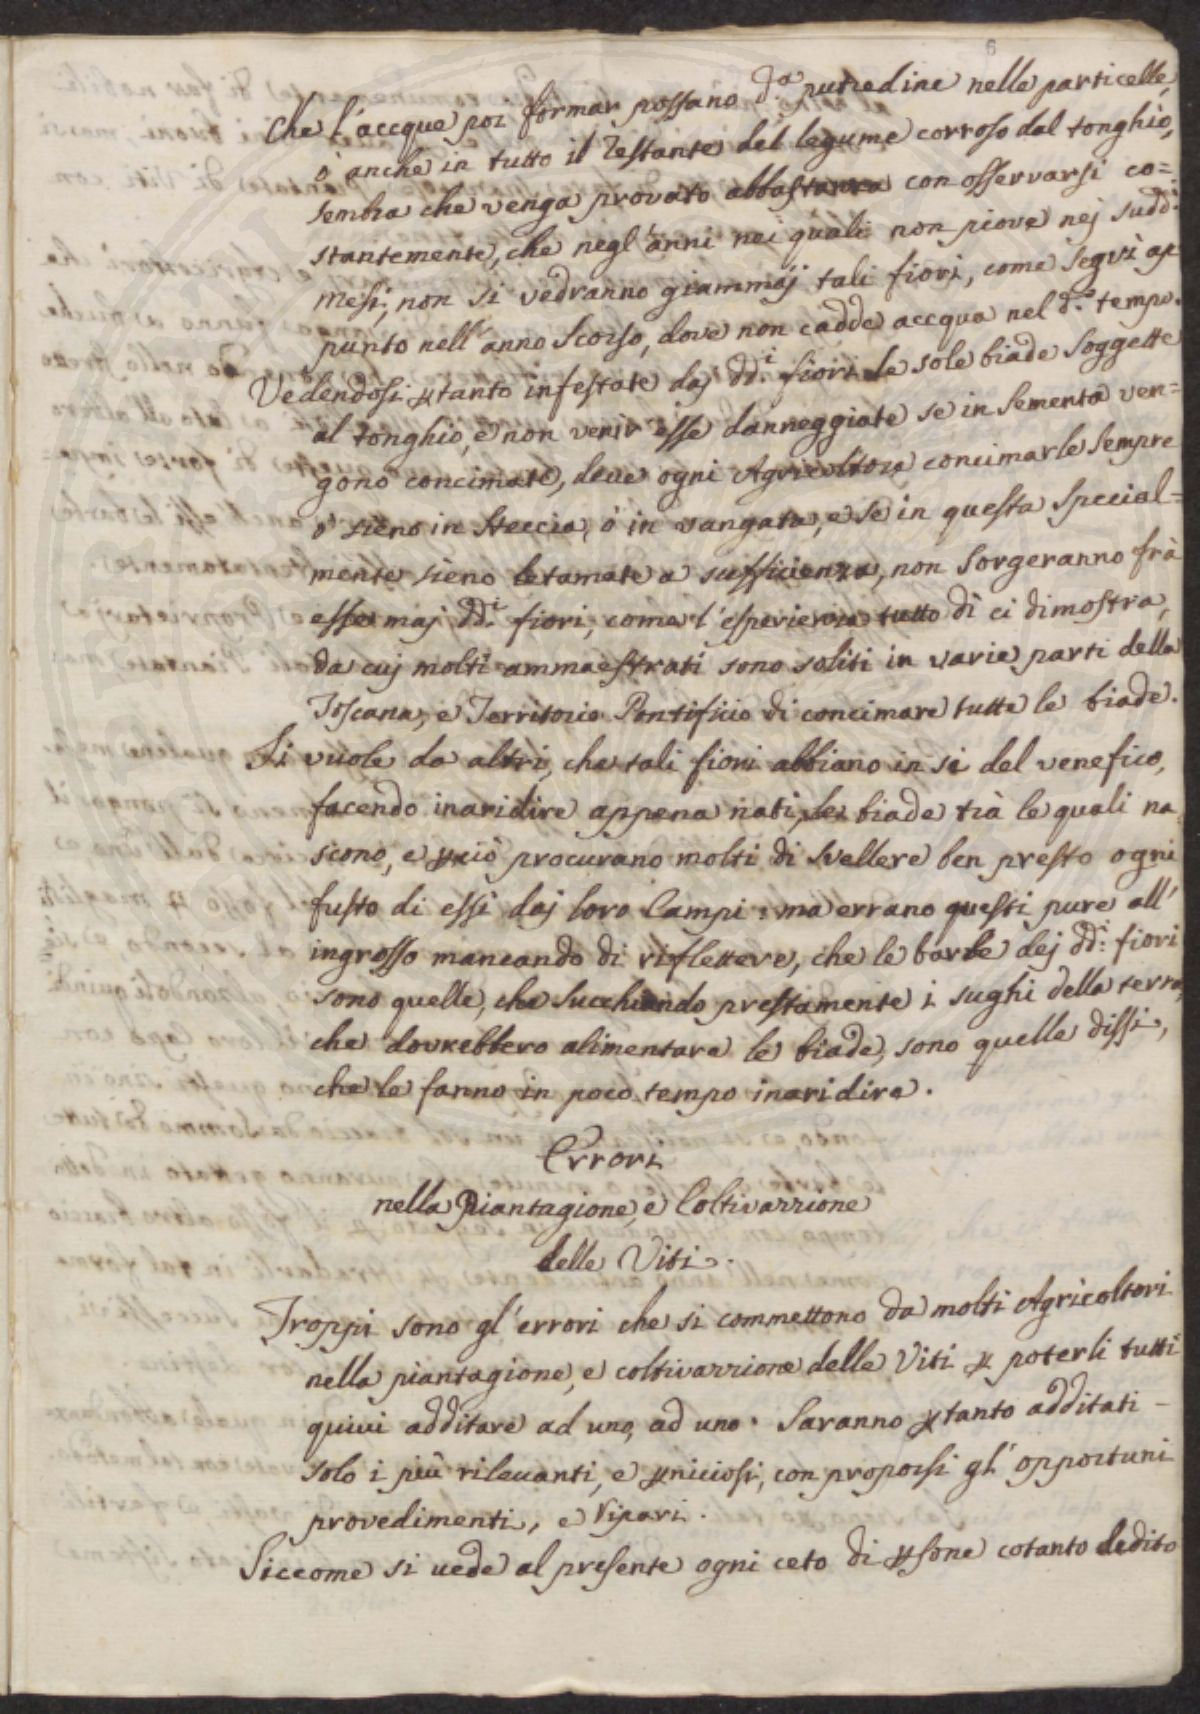 6
Che l'accque poi formar possano d.ª putredine nelle particelle,
ò anche in tutto il restante del legume corroso dal tonghio,
sembra che venga provato abbastanza con osservarsi co=
stantemente, che negl'anni nei quali non piove nej sudd.i
mesi, non si vedranno giammaj tali fiori, come seguì ap
punto nell'anno scorso, dove non cadde accqua nel d.º tempo.
Vedendosi ptanto infestate daj dd.i fiori le sole biade soggette
al tonghio, e non venir esse danneggiate se in sementa ven=
gono concimate, deve ogni Agricoltore concimarle sempre
ò sieno in steccia, ò in vangata, e se in questa special=
mente sieno letamate a sufficienza, non sorgeranno frà
esse maj dd.i fiori, come l'esperienza tutto dì ci dimostra,
da cuj molti ammaestrati sono soliti in varie parti della
Toscana, e Territorio Pontificio di concimare tutte le biade.
Si vuole da altri, che tali fiori abbiano in se del venefico,
facendo inaridire appena nati, le biade trà le quali na
scono, e pciò procurano molti di svellere ben presto ogni
fusto di essi daj loro Campi: ma errano questi pure all'
ingrosso mancando di riflettere, che le barbe dej dd.i fiori
sono quelle, che succhiando prestamente i sughi della terra,
che dovrebbero alimentare le biade, sono quelle dissi,
che le fanno in poco tempo inaridire.
Errori
nella Piantagione, e Coltivazzione
delle Viti.
Troppi sono gl'errori che si commettono da molti Agricoltori
nella piantagione, e coltivazzione delle Viti p poterli tutti
quivi additare ad uno, ad uno. Saranno ptanto additati -
solo i più rilevanti, e pniciosi, con proporsi gl'opportuni
provedimenti, e ripari.
Siccome si vede al presente ogni ceto di psone cotanto dedito